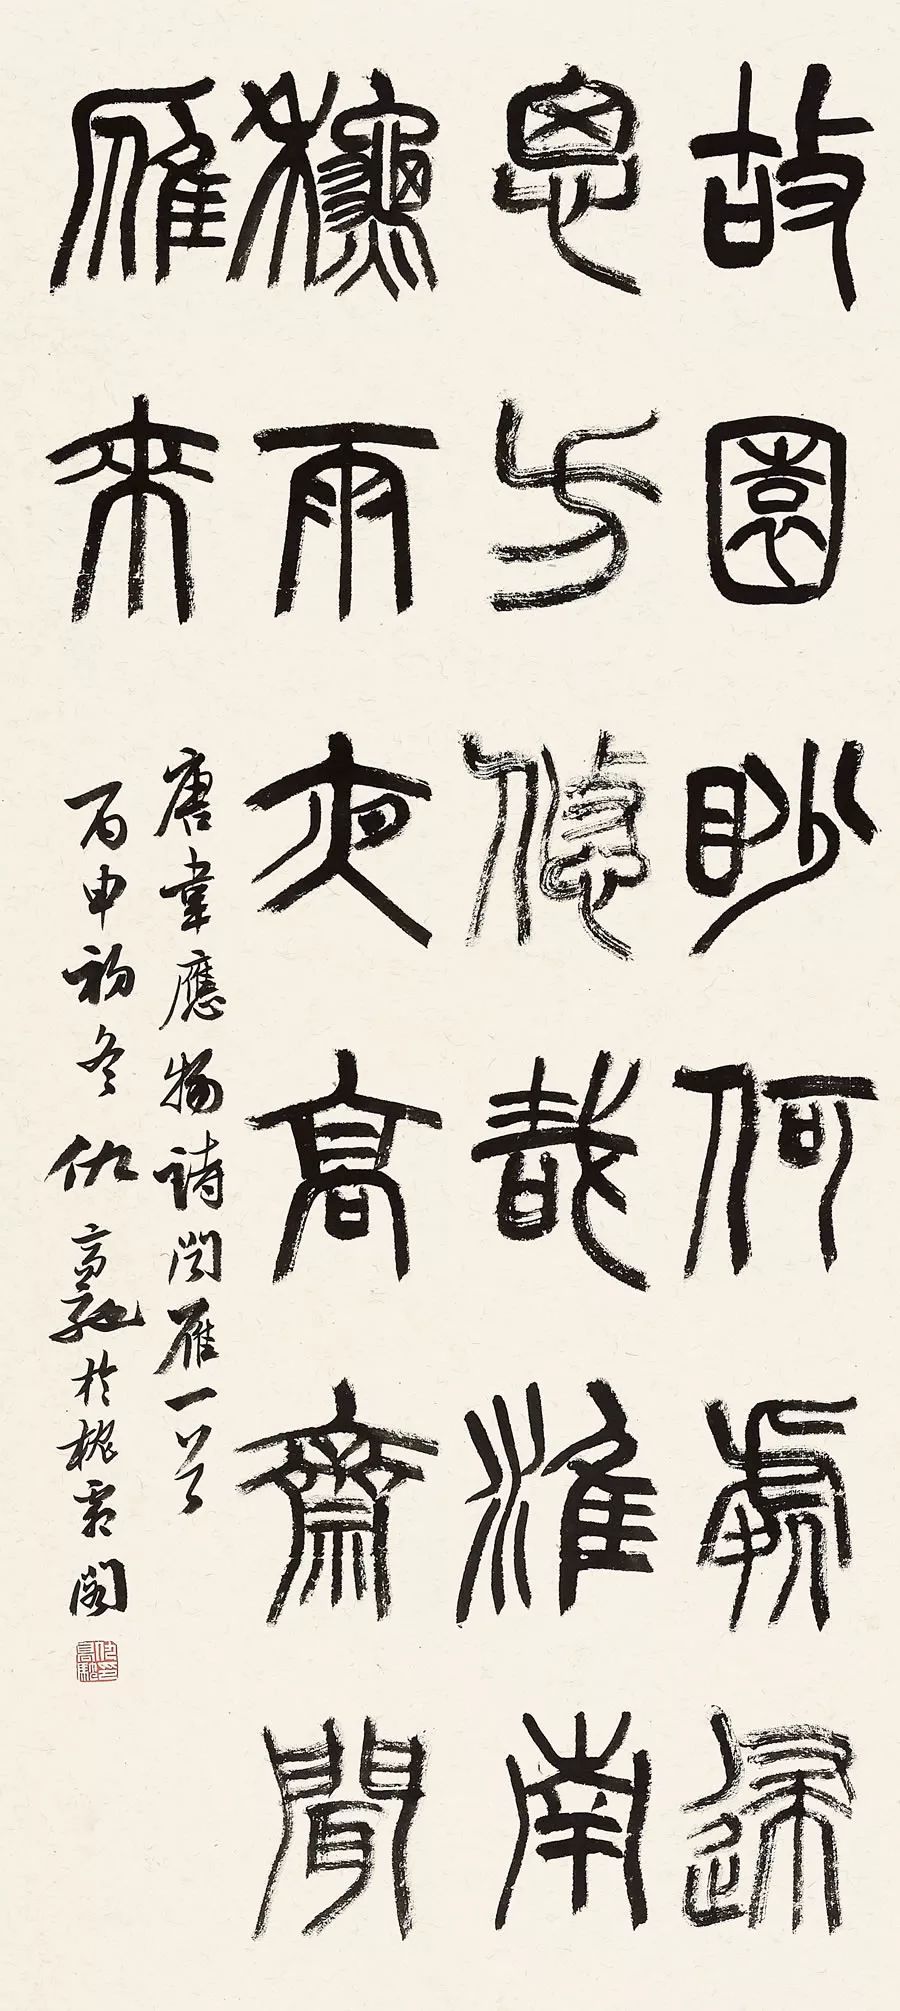 故園眇何處歸
思方悠哉淮南
龝雨夜高齋聞
雁來
唐韋應物詩聞雁一首
丙申初冬仇高馳於槐閣